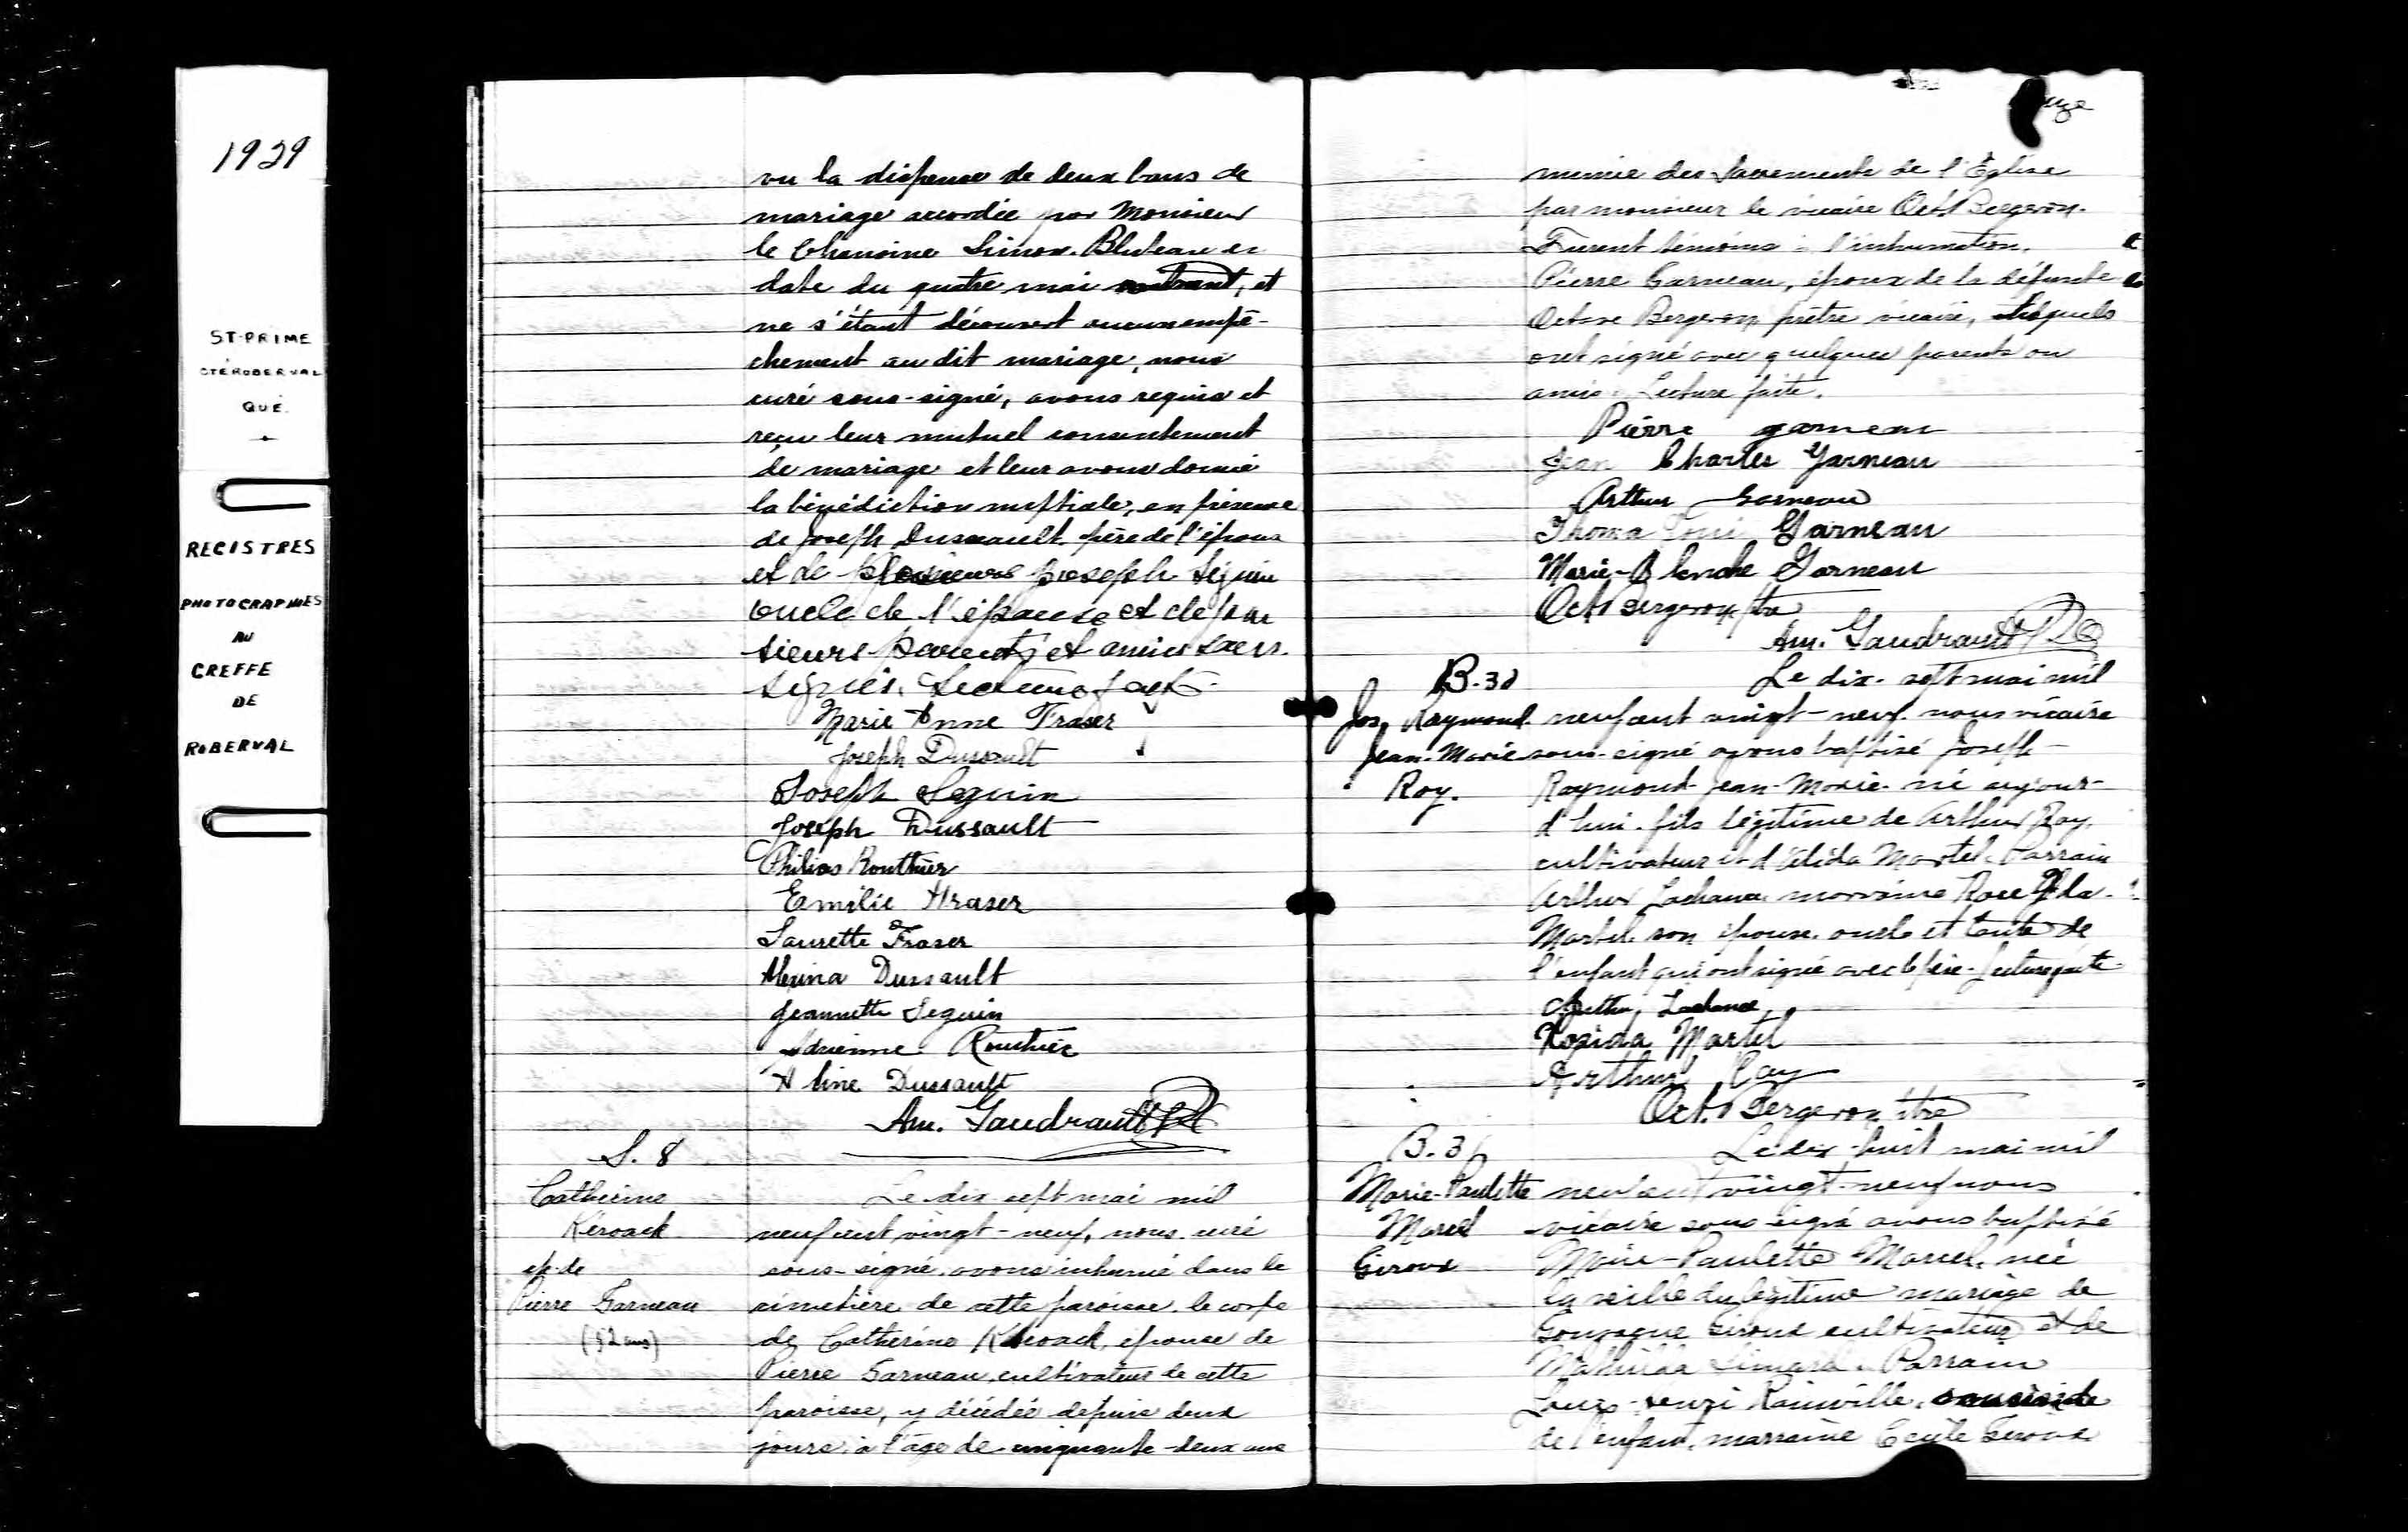 1929
ST-PRIME
CTÉ ROBERVAL
QUÉ.
REGISTRES
PHOTOGRAPHIÉS
AU
GREFFE
DE
ROBERVAL
vu la dispense de deux bans de
mariage accordée par Monsieur
le Chanoine Simon Bluteau en
date du quatre mai courant, et
ne s'étant découvert aucun empê-
chement au dit mariage, nous
curé sous-signé, avons requis et
reçu leur mutuel consentement
de mariage et leur avons donné
la bénédiction nuptiale, en présence
de Joseph Dussault père de l'époux
et de Joseph Séguin
oncle de l'épouse et de plu
sieurs parents et amis sous
signés. Lecture faite.
Marie Anne Fraser
Joseph Dussault
Joseph Seguin
Joseph Dussault
Philias Routhier
Emilie Fraser
Laurette Fraser
Alexina Dussault
Jeannette Seguin
Adrienne Routhier
Aline Dussault
Am. Gaudrault Ptre
S. 8
Catherine
Kéroack
ép. de
Pierre Garneau
(52 ans)
Le dix-sept mai mil
neuf cent vingt-neuf, nous curé
sous-signé, avons inhumé dans le
cimetière de cette paroisse, le corps
de Catherine Kéroack, épouse de
Pierre Garneau, cultivateur de cette
paroisse, y décédée depuis deux
jours, à l'âge de cinquante-deux ans
onze
munie des sacrements de l'Eglise
par monsieur le vicaire Oct. Bergeron.
Furent témoins à l'inhumation,
Pierre Garneau, époux de la défunte
Octave Bergeron prêtre vicaire, lesquels
ont signé avec quelques parents ou
amis. Lecture faite.
Pierre garneau
Jean Charles Garneau
Arthur Garneau
Thoma Garneau
Marie-Blanche Garneau
Oct. Bergeron ptre
Am. Gaudrault Ptre
B. 30
Jos. Raymond
Jean-Marie
Roy.
Le dix-sept mai mil
neuf cent vingt-neuf nous vicaire
sous-signé avons baptisé Joseph-
Raymond-Jean-Marie né aujour-
d'hui fils légitime de Arthur Roy,
cultivateur et d'Alida Martel. Parrain
Arthur Lachance marraine Rose
Martel son épouse oncle et tante de
l'enfant qui ont signé avec le père. Lecture faite
Arthur Lachance
Rosida Martel
Arthur Roy
Oct. Bergeron ptre
B. 31
Marie-Paulette
Marcel
Giroux
Le dix-huit mai mil
neuf cent vingt-neuf nous
vicaire sous-signé avons baptisé
Marie-Paulette Marcel, née
la veille du légitime mariage de
Gonzague Giroux cultivateur et de
Mathilda Simard. Parrain
Louis-Henri Rainville, cousin de
de l'enfant, marraine Cécile Giroux